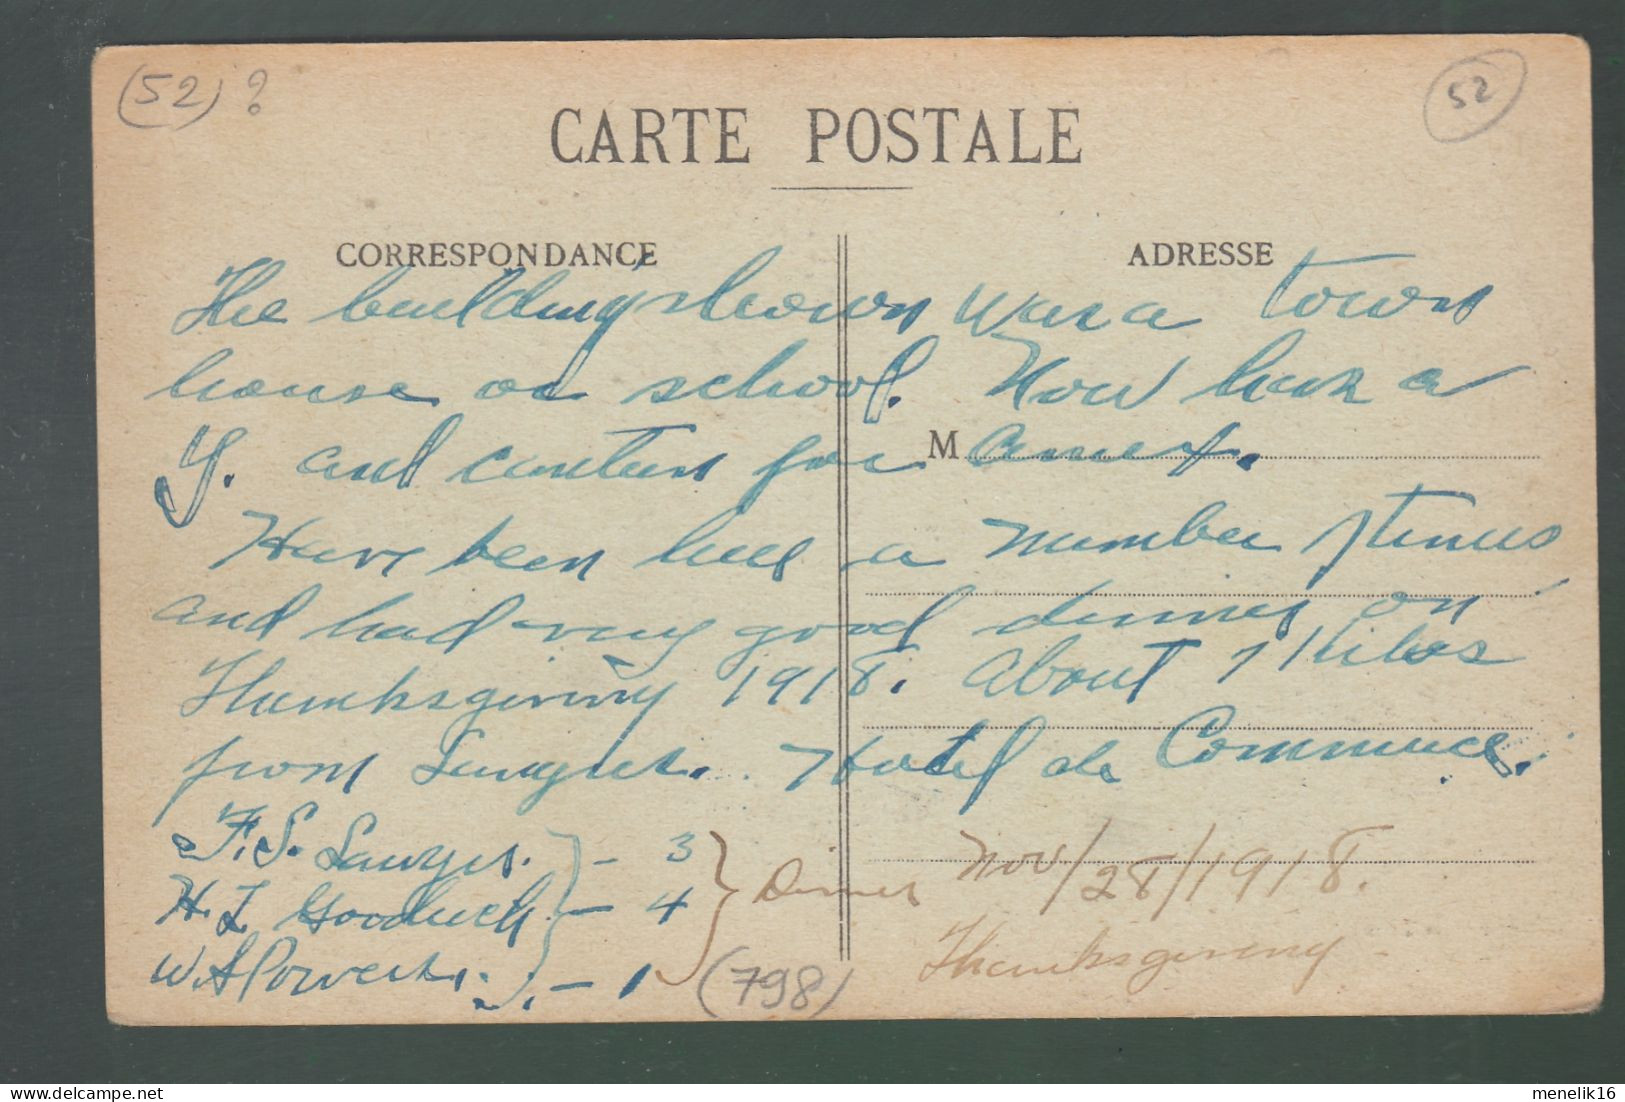 (52) ?
52
CARTE POSTALE
CORRESPONDANCE
ADRESSE
The building shown was a town
house or school. Now have a
Y. and canteen for
M
annex.
Have been here a number times
and had very good dinner on
Thanksgiving 1918. About 7 Kilos
from Langres. Hotel de Commerce.
F. S. Sawyer. - 3
H. L. Goodwich - 4
W. A. Powers. - 1
Dinner Nov/28/1918.
Thanksgiving -
(798)
delcampe.net
menelik16